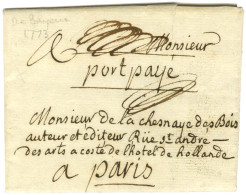 1773
A Monsieur
port payé
Monsieur de la chesnaye des Bois
auteur et éditeur Rüe st andre
des arts a coste de l'hotel de hollande
a paris